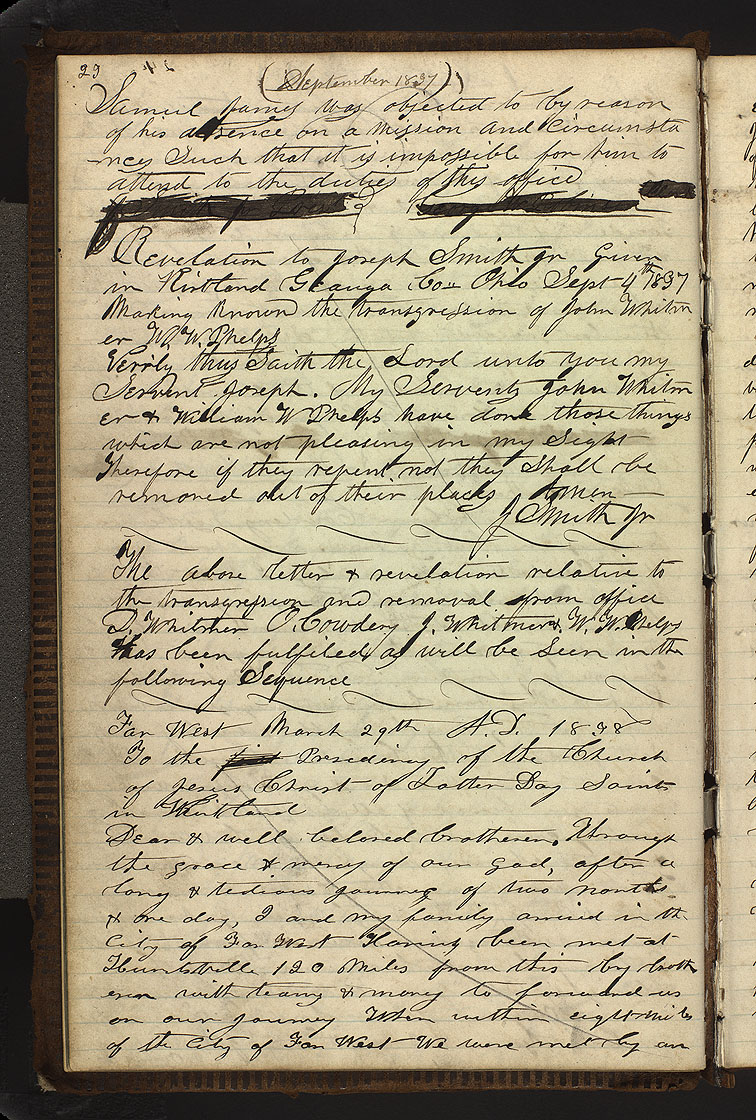 23
(September 1837)
Samuel James was objected to by reason
of his absence on a mission and circumsta
nces Such that it is impossible for him to
attend to the duties of this office
Revelation to Joseph Smith Jr Given
in Kirtland Geauga Co. Ohio Sept 4th 1837
Making Known the transgression of John Whitm
er W. W. Phelps
Verily thus Saith the Lord unto you my
Servent Joseph. My Servents John Whitm
er & William W Phelps have done those things
which are not pleasing in my Sight
Therefore if they repent not they Shall be
removed out of their places Amen—
J Smith Jr
The above letter & revelation relative to
the transgression and removal from office
D. Whitmer O. Cowdery J. Whitmer & W. W. Phelps
has been fulfiled as will be Seen in the
following Sequence
Far West March 29th A.D. 1838
To the first Presedincy of the Church
of Jesus Christ of Latter Day Saints
in Kirtland
Dear & well beloved brotheren. Through
the grace & mercy of our God, after a
long & tedious journey of two months
& one day, I and my family arrived in the
City of Far West Having been met at
Huntsville 120 Miles from this by broth
eren with teams & money to forward us
on our journey When within eight miles
of the City of Far West We were met by an